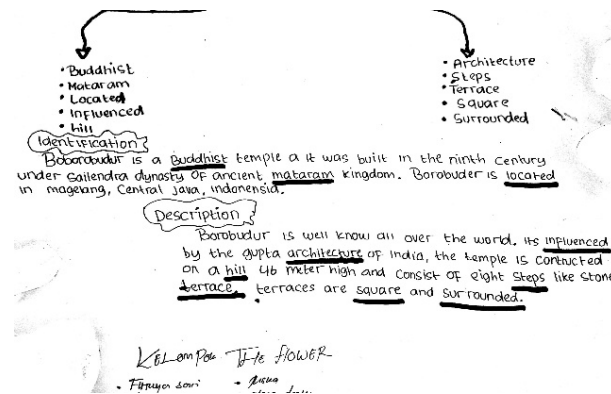 • Buddhist
• Mataram
• Located
• Influenced
• hill
• Architecture
• Steps
• Terrace
• Square
• Surrounded
Identification
Boborobudur is a Buddhist temple a it was built in the ninth century
under Sailendra dynasty of ancient mataram kingdom. Borobuder is located
in magelang, Central Java, Indonensia.
Description
Borobudur is well know all over the world. Its influenced
by the gupta architecture of India, the temple is contucted
on a hill 46 meter high and consist of eight steps like stone
terrace. terraces are square and surrounded.
KELOMPOK THE FLOWER
• sari
•